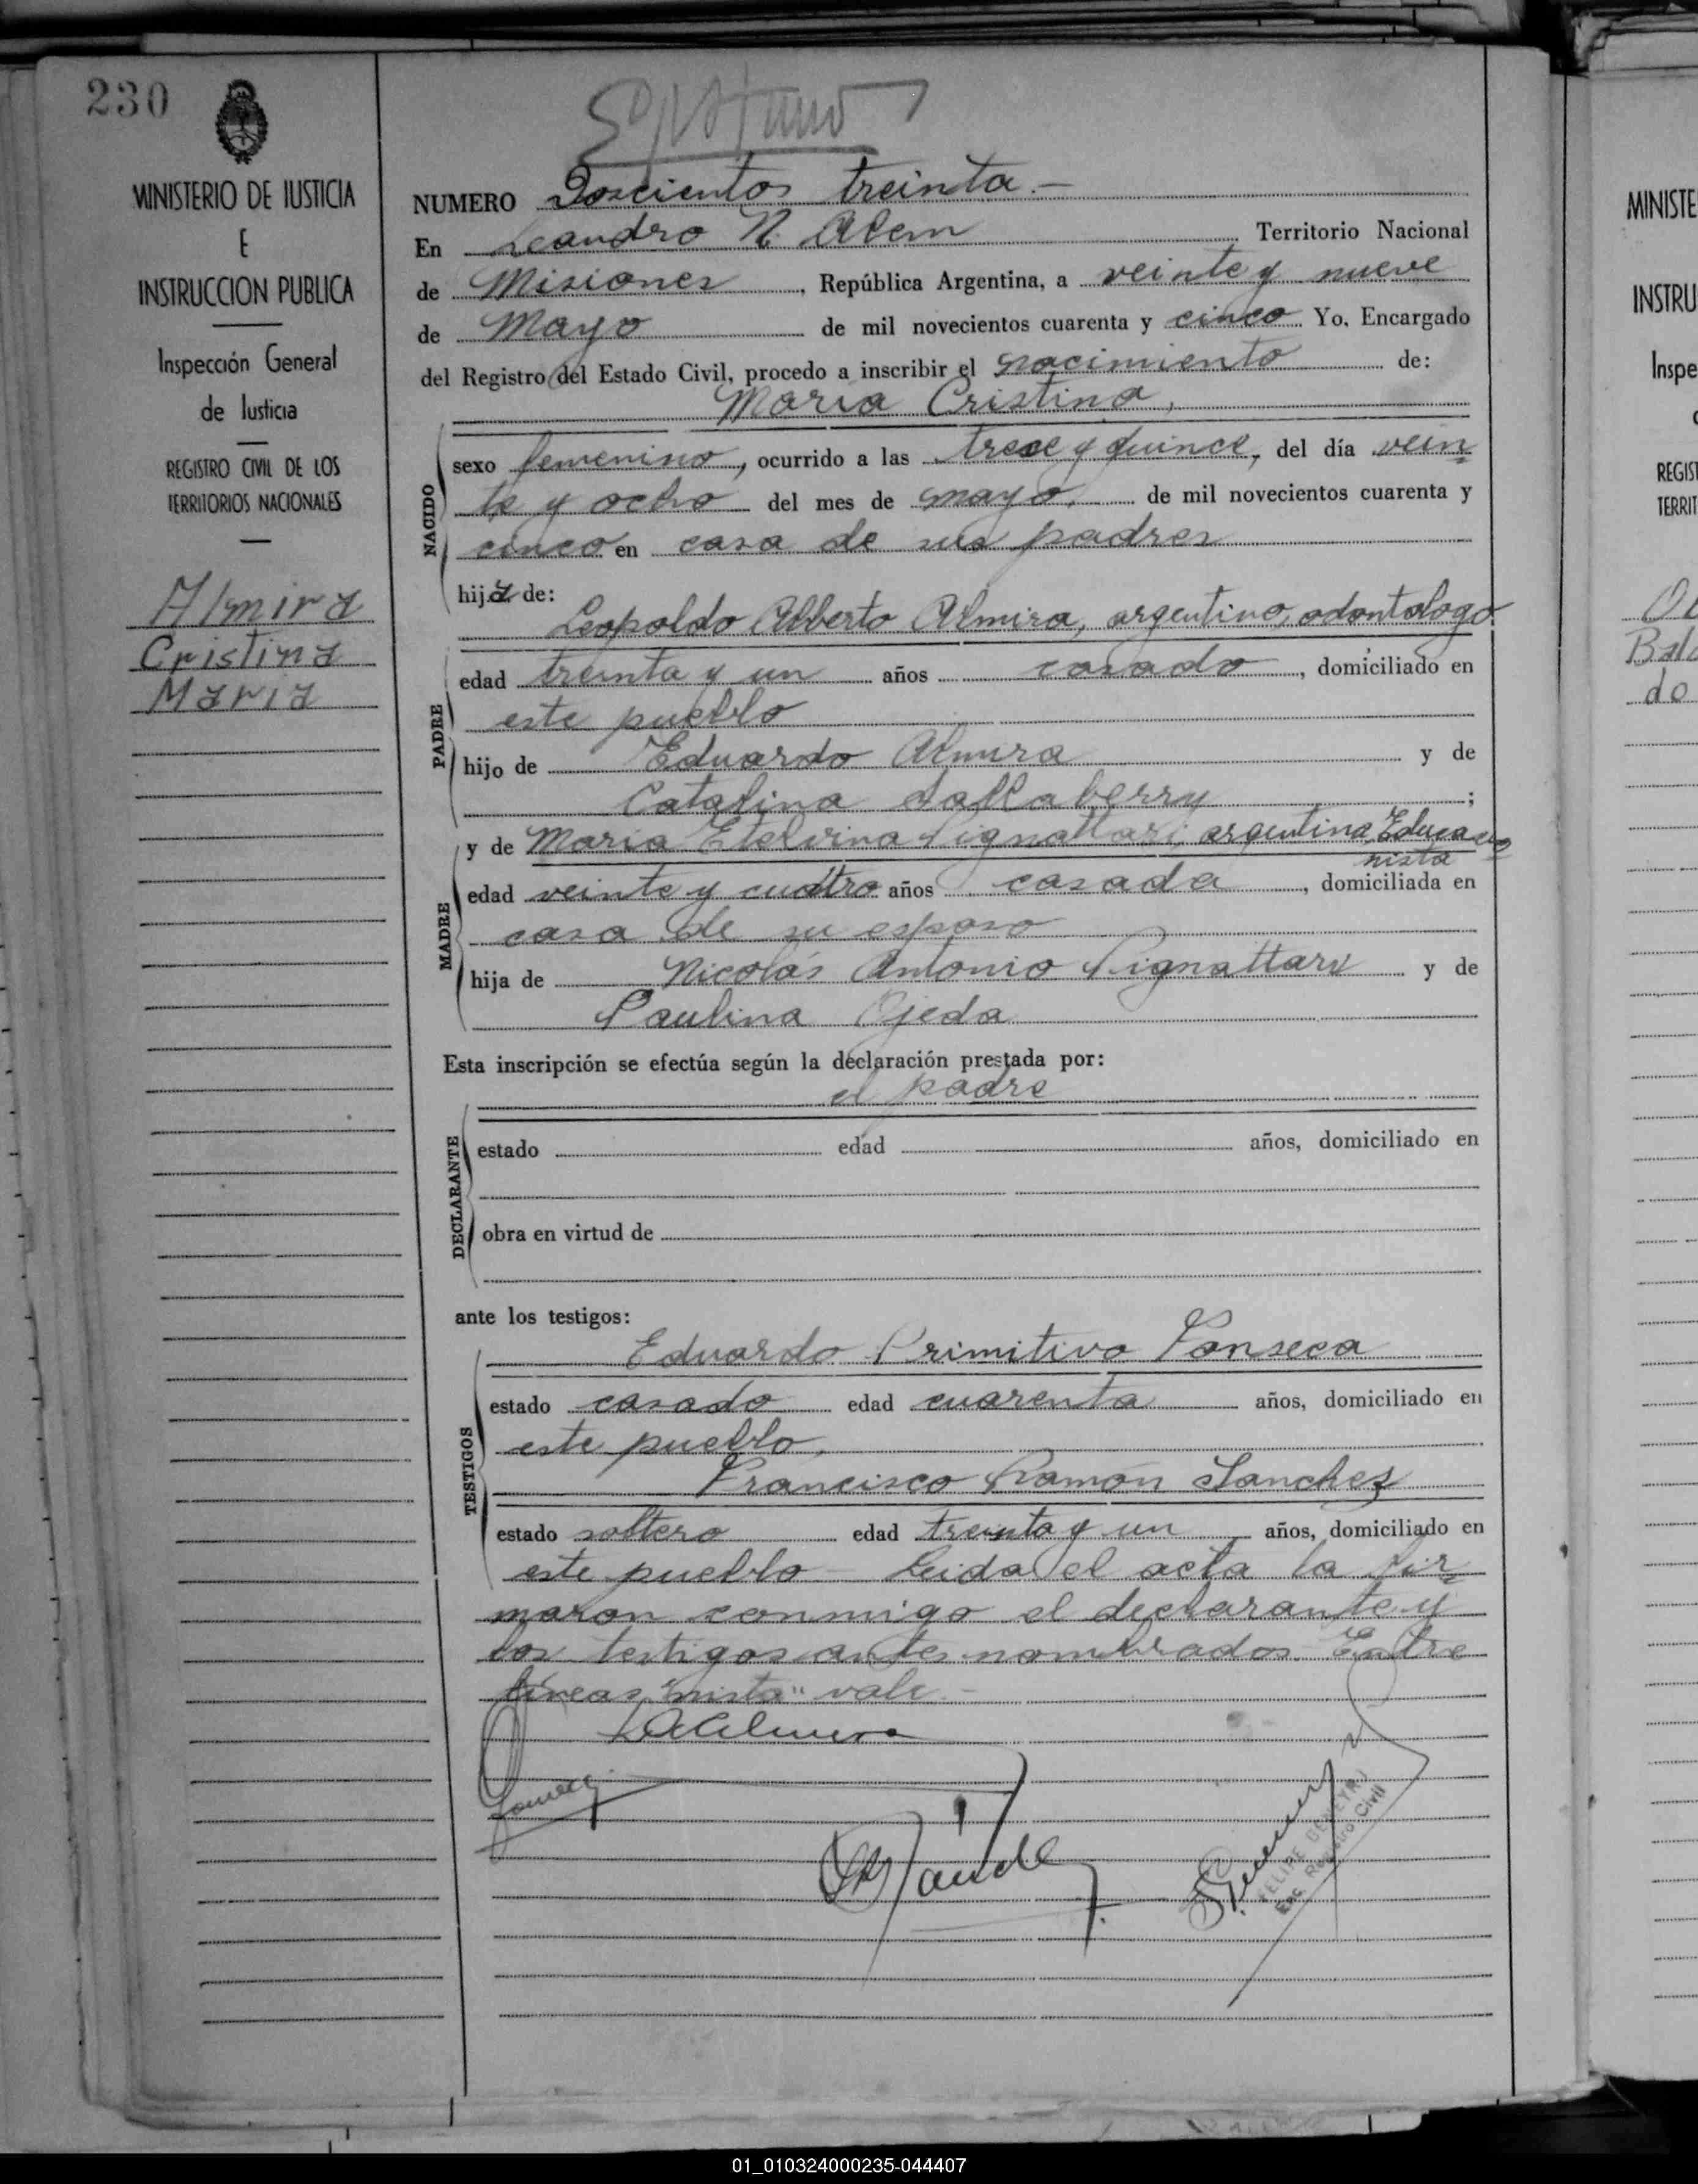 230
MINISTERIO DE JUSTICIA
E
INSTRUCCION PUBLICA
Inspección General
de Justicia
REGISTRO CIVIL DE LOS
TERRITORIOS NACIONALES
Almira
Cristina
Maria
NUMERO Doscientos treinta.—
En Leandro N. Alem Territorio Nacional
de Misiones, República Argentina, a veinte y nueve
de Mayo de mil novecientos cuarenta y cinco Yo, Encargado
del Registro del Estado Civil, procedo a inscribir el nacimiento de:
Maria Cristina,
NACIDO
sexo femenino, ocurrido a las trece y quince, del día vein
te y ocho del mes de mayo, de mil novecientos cuarenta y
cinco en casa de sus padres
hija de:
Leopoldo Alberto Almira, argentino, odontologo
PADRE
edad treinta y un años casado, domiciliado en
este pueblo
hijo de Eduardo Almira y de
Catalina Sallaberry;
y de Maria Etelvina Pignattari, argentina, Educacio
nista
MADRE
edad veinte y cuatro años casada, domiciliada en
casa de su esposo
hija de Nicolás Antonio Pignattari y de
Paulina Ojeda
Esta inscripción se efectúa según la declaración prestada por:
el padre
DECLARANTE
estado edad años, domiciliado en
obra en virtud de
ante los testigos:
Eduardo Primitivo Fonseca
TESTIGOS
estado casado edad cuarenta años, domiciliado en
este pueblo,
Francisco Ramón Sanchez
estado soltero edad treinta y un años, domiciliado en
este pueblo — Leida el acta la fir
maron conmigo el declarante y
los testigos antes nombrados. Entre
lineas "nista" vale.—
LAAlmira
FELIPE
Enc. Registro Civil
MINISTE
INSTRU
Inspe
REGIST
TERRIT
do
01_010324000235-044407